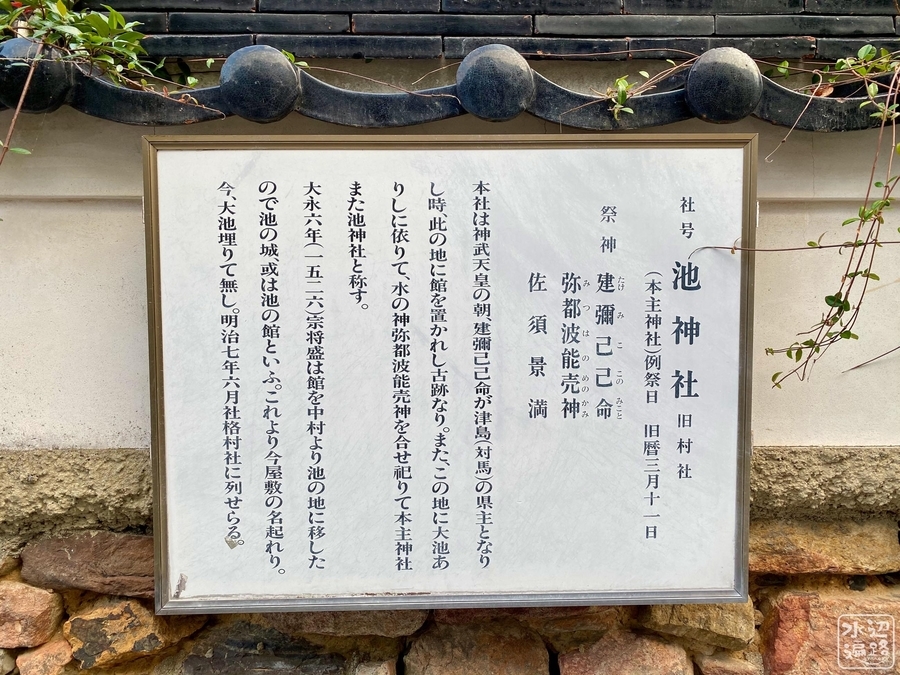 社号 池神社 旧村社
(本主神社)例祭日 旧暦三月十一日
祭神 建彌己己命
たけ み こ この みこと
弥都波能売神
み つ は の めの かみ
佐須景満
本社は神武天皇の朝、建彌己己命が津島(対馬)の県主となり
し時、此の地に館を置かれし古跡なり。また、この地に大池あ
りしに依りて、水の神弥都波能売神を合せ祀りて本主神社
また池神社と称す。
大永六年(一五二六)宗将盛は館を中村より池の地に移した
ので池の城、或は池の館といふ。これより今屋敷の名起れり。
今、大池埋りて無し。明治七年六月社格村社に列せらる。
水辺遍路